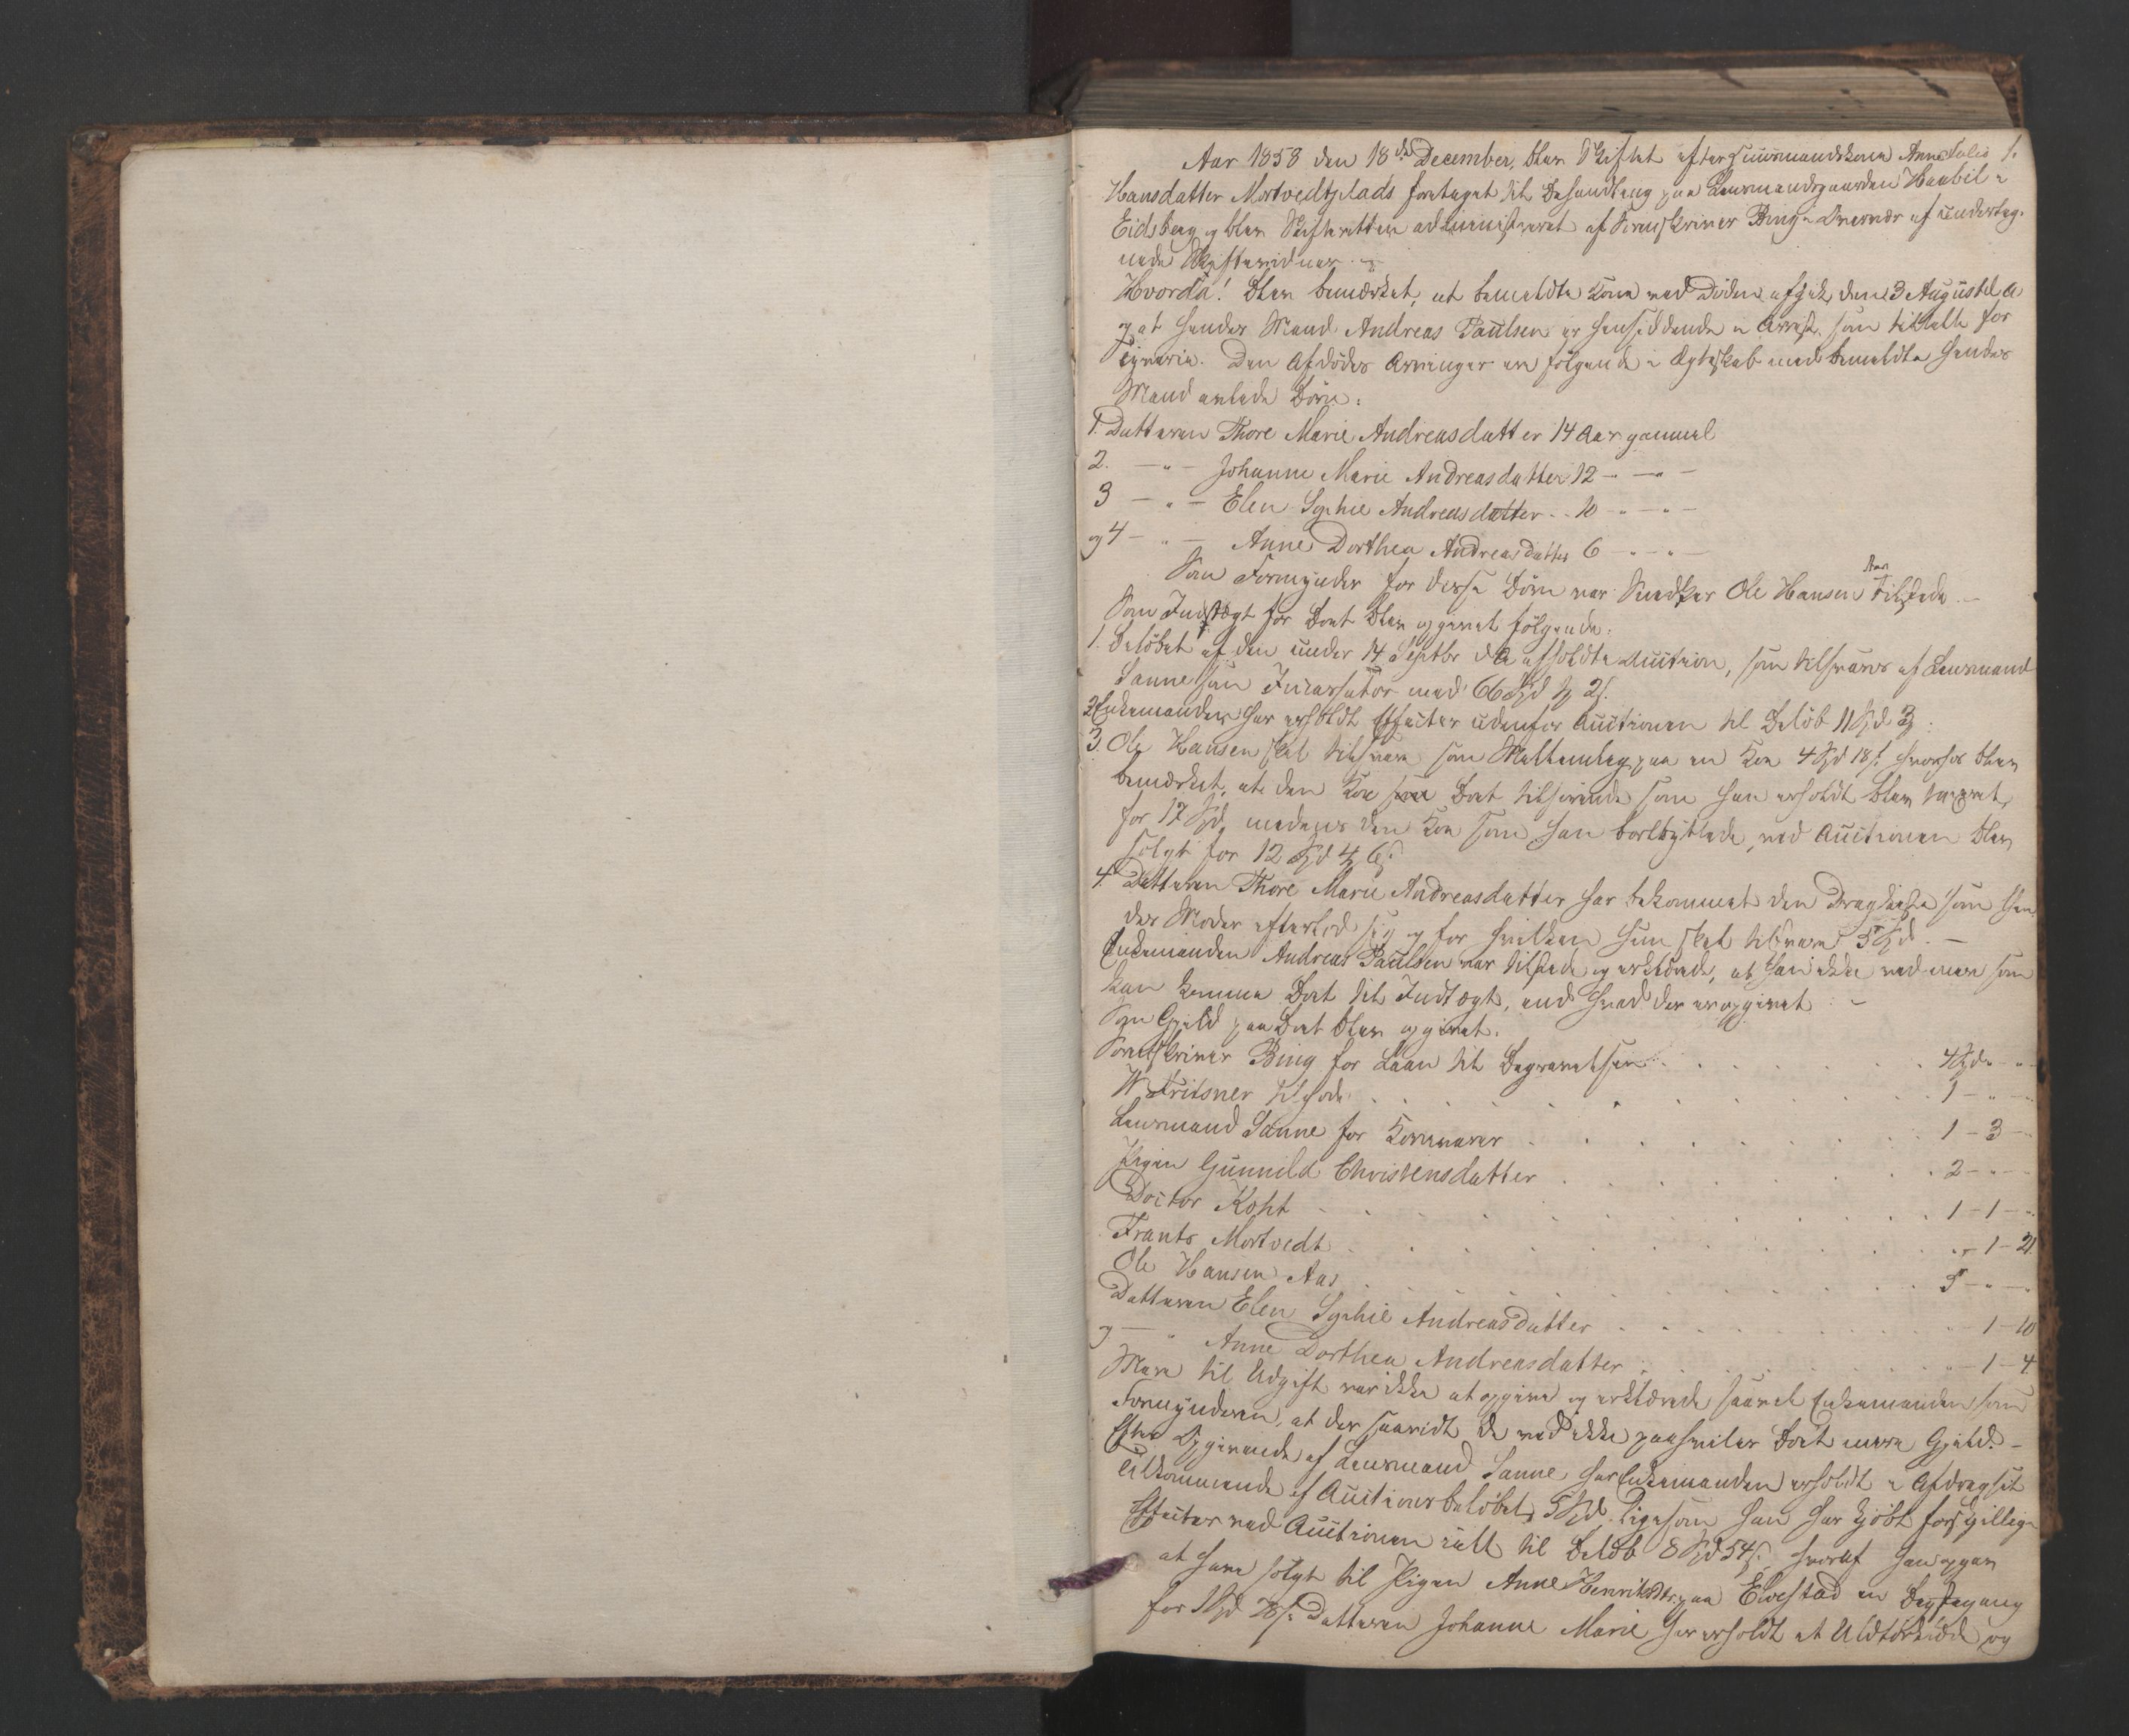 1.
Aar 1858 den 18de December, blev Skiftet efter Huusmandskone Anne Julie
Hansdatter Mortvedtplads foretaget til Behandling paa Lensmandsgaarden Haabil i
Eidsberg og blev Skifteretten administreret af Sorenskriver Bing i Overvær af underteg-
nede Skiftevidner.
Hvorda! blev bemærket, at bemeldte Kone ved Døden afgik den 3 August d. A.
og at hendes Mand Andreas Paulsen er hensiddende i Arrest som tiltalt for
Tyverie. Den Afdødes Arvinger ere følgende i Ægteskab med bemeldte hendes
Mand avlede Børn:
1. Datteren Thore Marie Andreasdatter 14 Aar gammel
2. — " — Johanne Marie Andreasdatter 12 — " —
3 — " — Elen Sophie Andreasdatter .. 10 — " — " —
og 4 — " — Anne Dorthea Andreasdatter 6 — " — " —
Som Formynder for disse Børn var Snedker Ole Hansen Aas tilstede. —
Som Indtægt for Boet blev opgivet følgende:
1. Beløbet af den under 14 Septbr d A afholdte Auction, som tilsvares af Lensmand
Sanne som Incassator med 66 Spd 4 2 s.
2. Enkemanden har erholdt Effecter udenfor Auctionen til Beløb 11 Spd 3
3. Ole Hansen skal tilsvare som Mellemlag paa en Koe 4 Spd 18 s. hvorhos blev
bemærket, at den Koe Boet tilhørende som han erholdt blev taxeret
for 17 Spd, medens den Koe som han bortbyttede, ved Auctionen blev
solgt for 12 Spd 4 6 s.
4. Datteren Thore Marie Andreasdatter har bekommet den Dragkiste som hen-
des Moder efterlod sig og for hvilken hun skal tilsvare 5 Spd. —
Enkemanden Andreas Paulsen var tilstede og erklærede, at han ikke ved mere som
kan komme Boet til Indtægt, end hvad der er opgivet. —
Som Gjeld paa Boet blev opgivet.
Sorenskriver Bing for Laan til Begravelsen . . . . . . 4 Spd " — "
W. tilgode . . . . . . 1 — " — "
Lensmand Sanne for Kornvarer . . . . . . 1 — 3 —
Pigen Gunnild Christensdatter . . . . . . 2 — " —
Doctor Koht . . . . . . 1 — 1 — "
Frants Mortvedt . . . . . . " — 1 — 21.
Ole Hansen Aas . . . . . . 5 — " —
Datteren Elen Sophie Andreasdatter . . . . . . 1 — 10
og — " Anne Dorthea Andreasdatter . . . . . . " — 1 — 4
Mere til Udgift var ikke at opgive og erklærede saavel Enkemanden som
Formynderen, at der saavidt de ved ikke paahviler Boet mere Gjeld. —
Efter Opgivende af Lensmand Sanne har Enkemanden erholdt i Afdrag sit
Tilkommende af Auctionsbeløbet 5 Spd. ligesom han har kjøbt forskjellige
Effecter ved Auctionen ialt til Beløb 8 Spd 54 s., hvoraf han opgav
at have solgt til Pigen Anne Henriksdtr. paa Elvestad en
for 1 Spd 78 s. Datteren Johanne Marie har erholdt et og